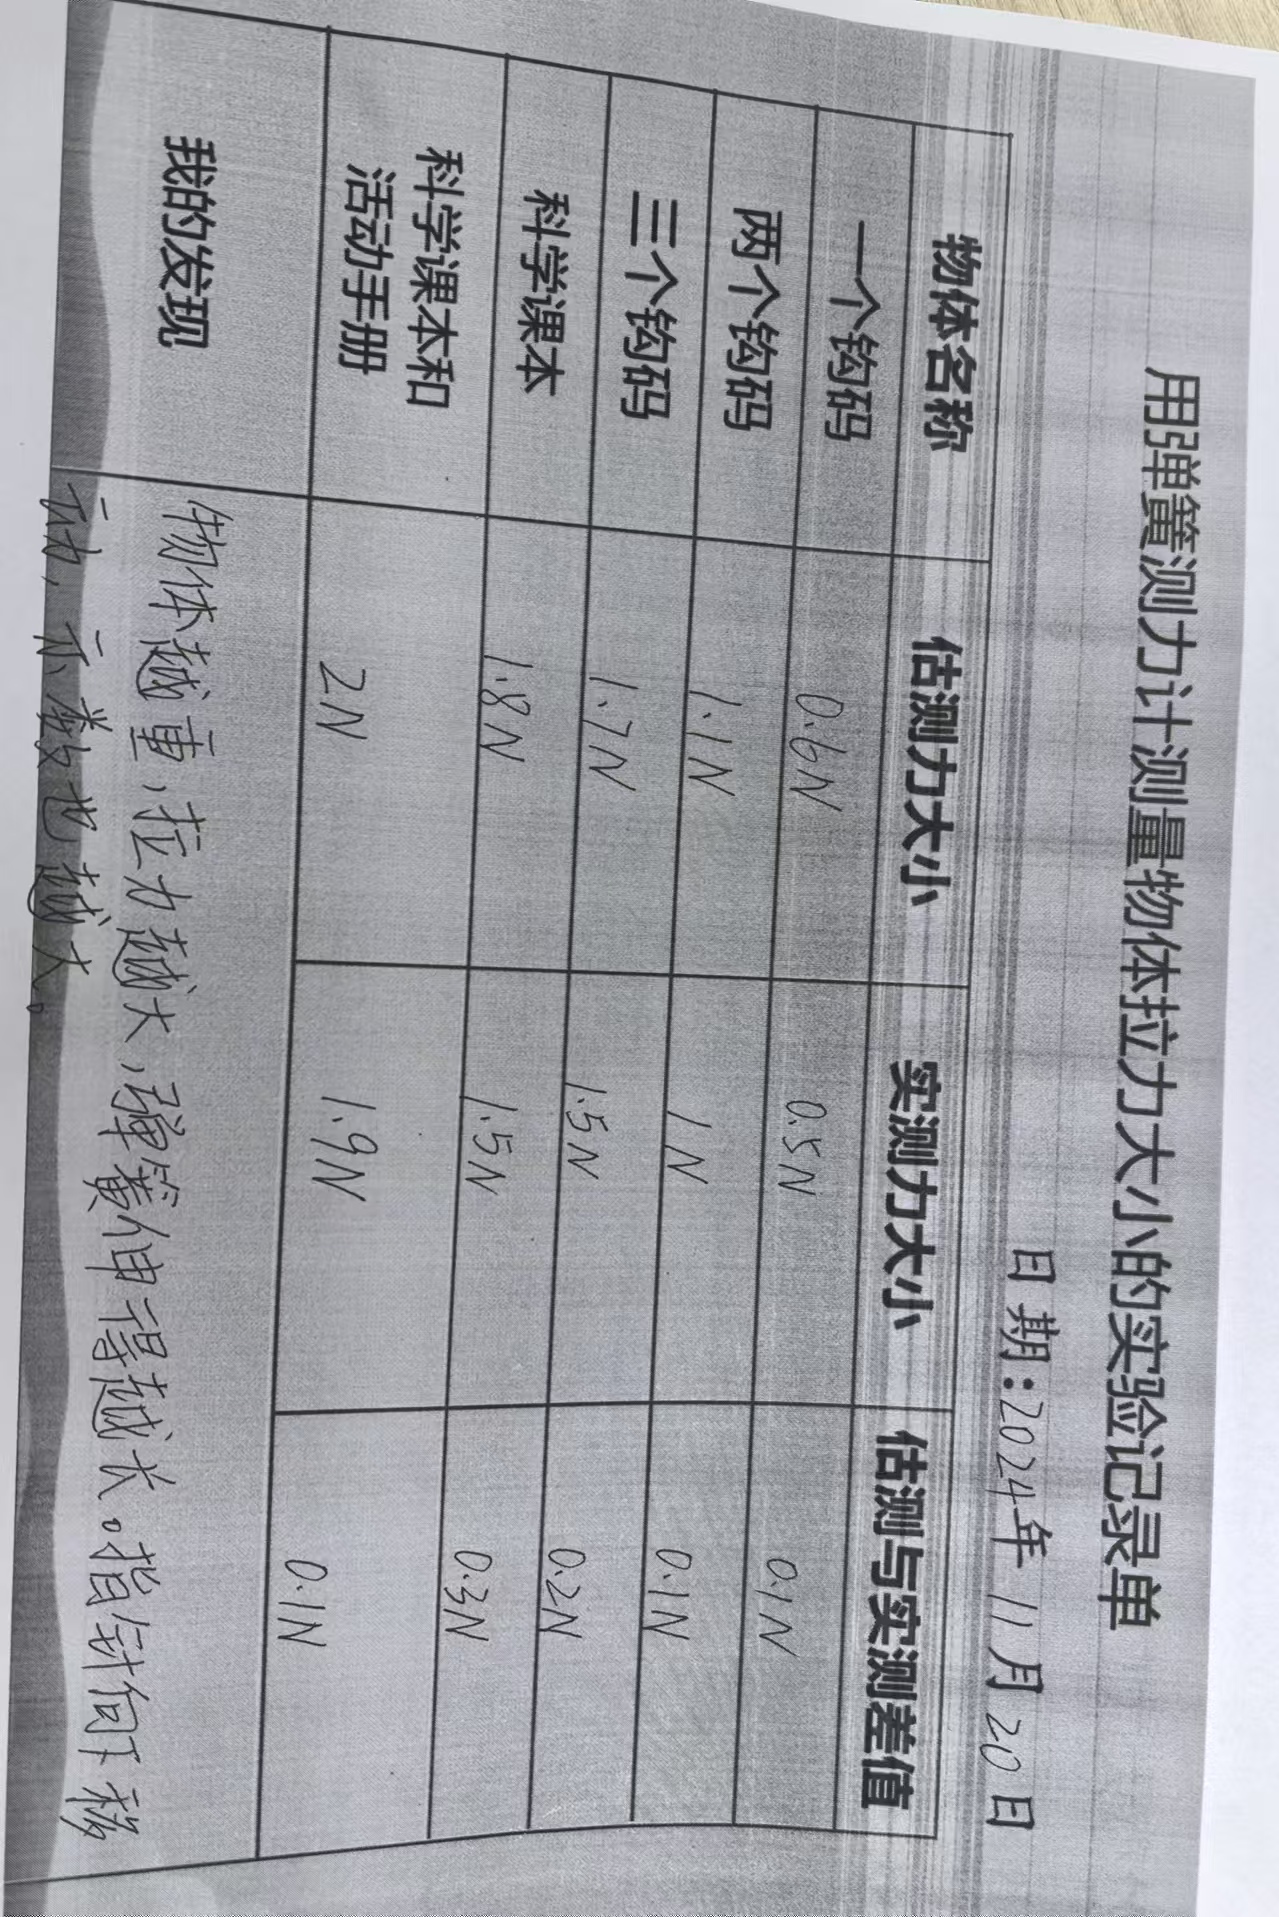 用弹簧测力计测量物体拉力大小的实验记录单
日期:2024年11月20日
物体名称 估测力大小 实测力大小 估测与实测差值
一个钩码 0.6N 0.5N 0.1N
两个钩码 1.1N 1N 0.1N
三个钩码 1.7N 1.5N 0.2N
科学课本 1.8N 1.5N 0.3N
科学课本和
活动手册 2N 1.9N 0.1N
我的发现 物体越重,拉力越大,弹簧伸得越长。指针向下移
动,示数也越大。